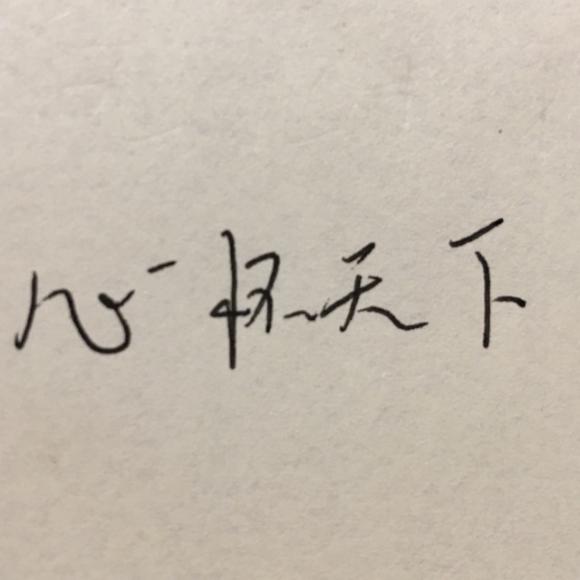 心怀天下